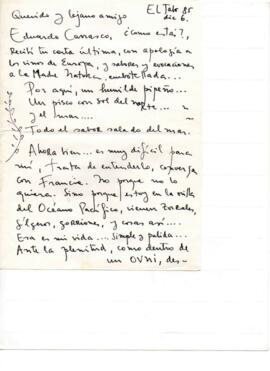 El Tabo 85
dic 6.
Querido y lejano amigo
Eduardo Carrasco, ¿Como está?,
Recibí tu carta última, con apología
a los vinos de Europa, y sabores y evaciones
a la Madre Natura, embotellada...
Por aquí, un humilde pipeño...
Un pisco con sol del norte...
y el mar....
Todo el sabor salado del mar.
Ahora bien... es muy difícil para
mí, trata de entenderlo, conversar
con Francia. No porque no lo
quiera. Sino porque estoy en la orilla
del Océano Pacífico, vienen zorzales,
jilgueros, gorriones, y cosas así....
Esa es mi vida.... simple y pulida...
Ante la plenitud, como dentro de
un OVNI, des-